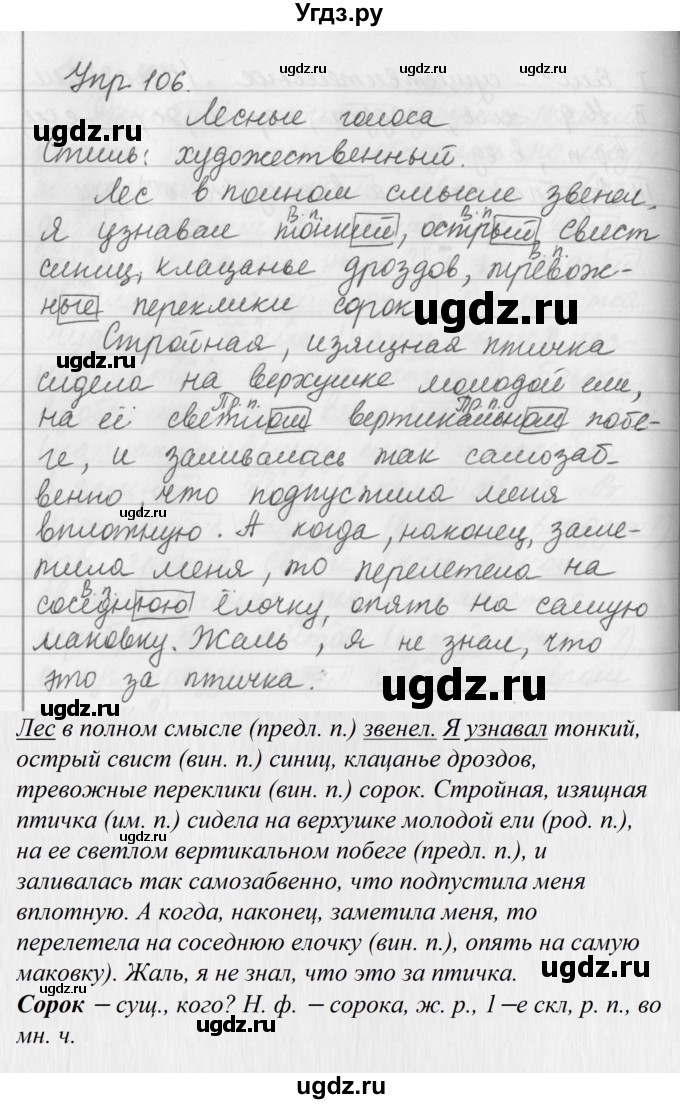 Угдз.ру
Упр 106.
Лесные голоса
Стиль: художественный.
Лес в полном смысле звенел.
В.п. В.п.
Я узнавал тонкий, острый свист
В.п.
синиц, клацанье дроздов, тревож-
ные переклики сорок
Стройная, изящная птичка
сидела на верхушке молодой ели,
Пр.п. Пр.п.
на её светлом вертикальном побе-
ге, и заливалась так самозаб-
венно, что подпустила меня
вплотную. А когда, наконец, заме-
тила меня, то перелетела на
В.п.
соседнюю ёлочку, опять на самую
маковку. Жаль, я не знал, что
это за птичка.
Лес в полном смысле (предл. п.) звенел. Я узнавал тонкий,
острый свист (вин. п.) синиц, клацанье дроздов,
тревожные переклики (вин. п.) сорок. Стройная, изящная
птичка (им. п.) сидела на верхушке молодой ели (род. п.),
на ее светлом вертикальном побеге (предл. п.), и
заливалась так самозабвенно, что подпустила меня
вплотную. А когда, наконец, заметила меня, то
перелетела на соседнюю елочку (вин. п.), опять на самую
маковку). Жаль, я не знал, что это за птичка.
Сорок – сущ., кого? Н. ф. – сорока, ж. р., 1–е скл, р. п., во
мн. ч.
ugdz.ru